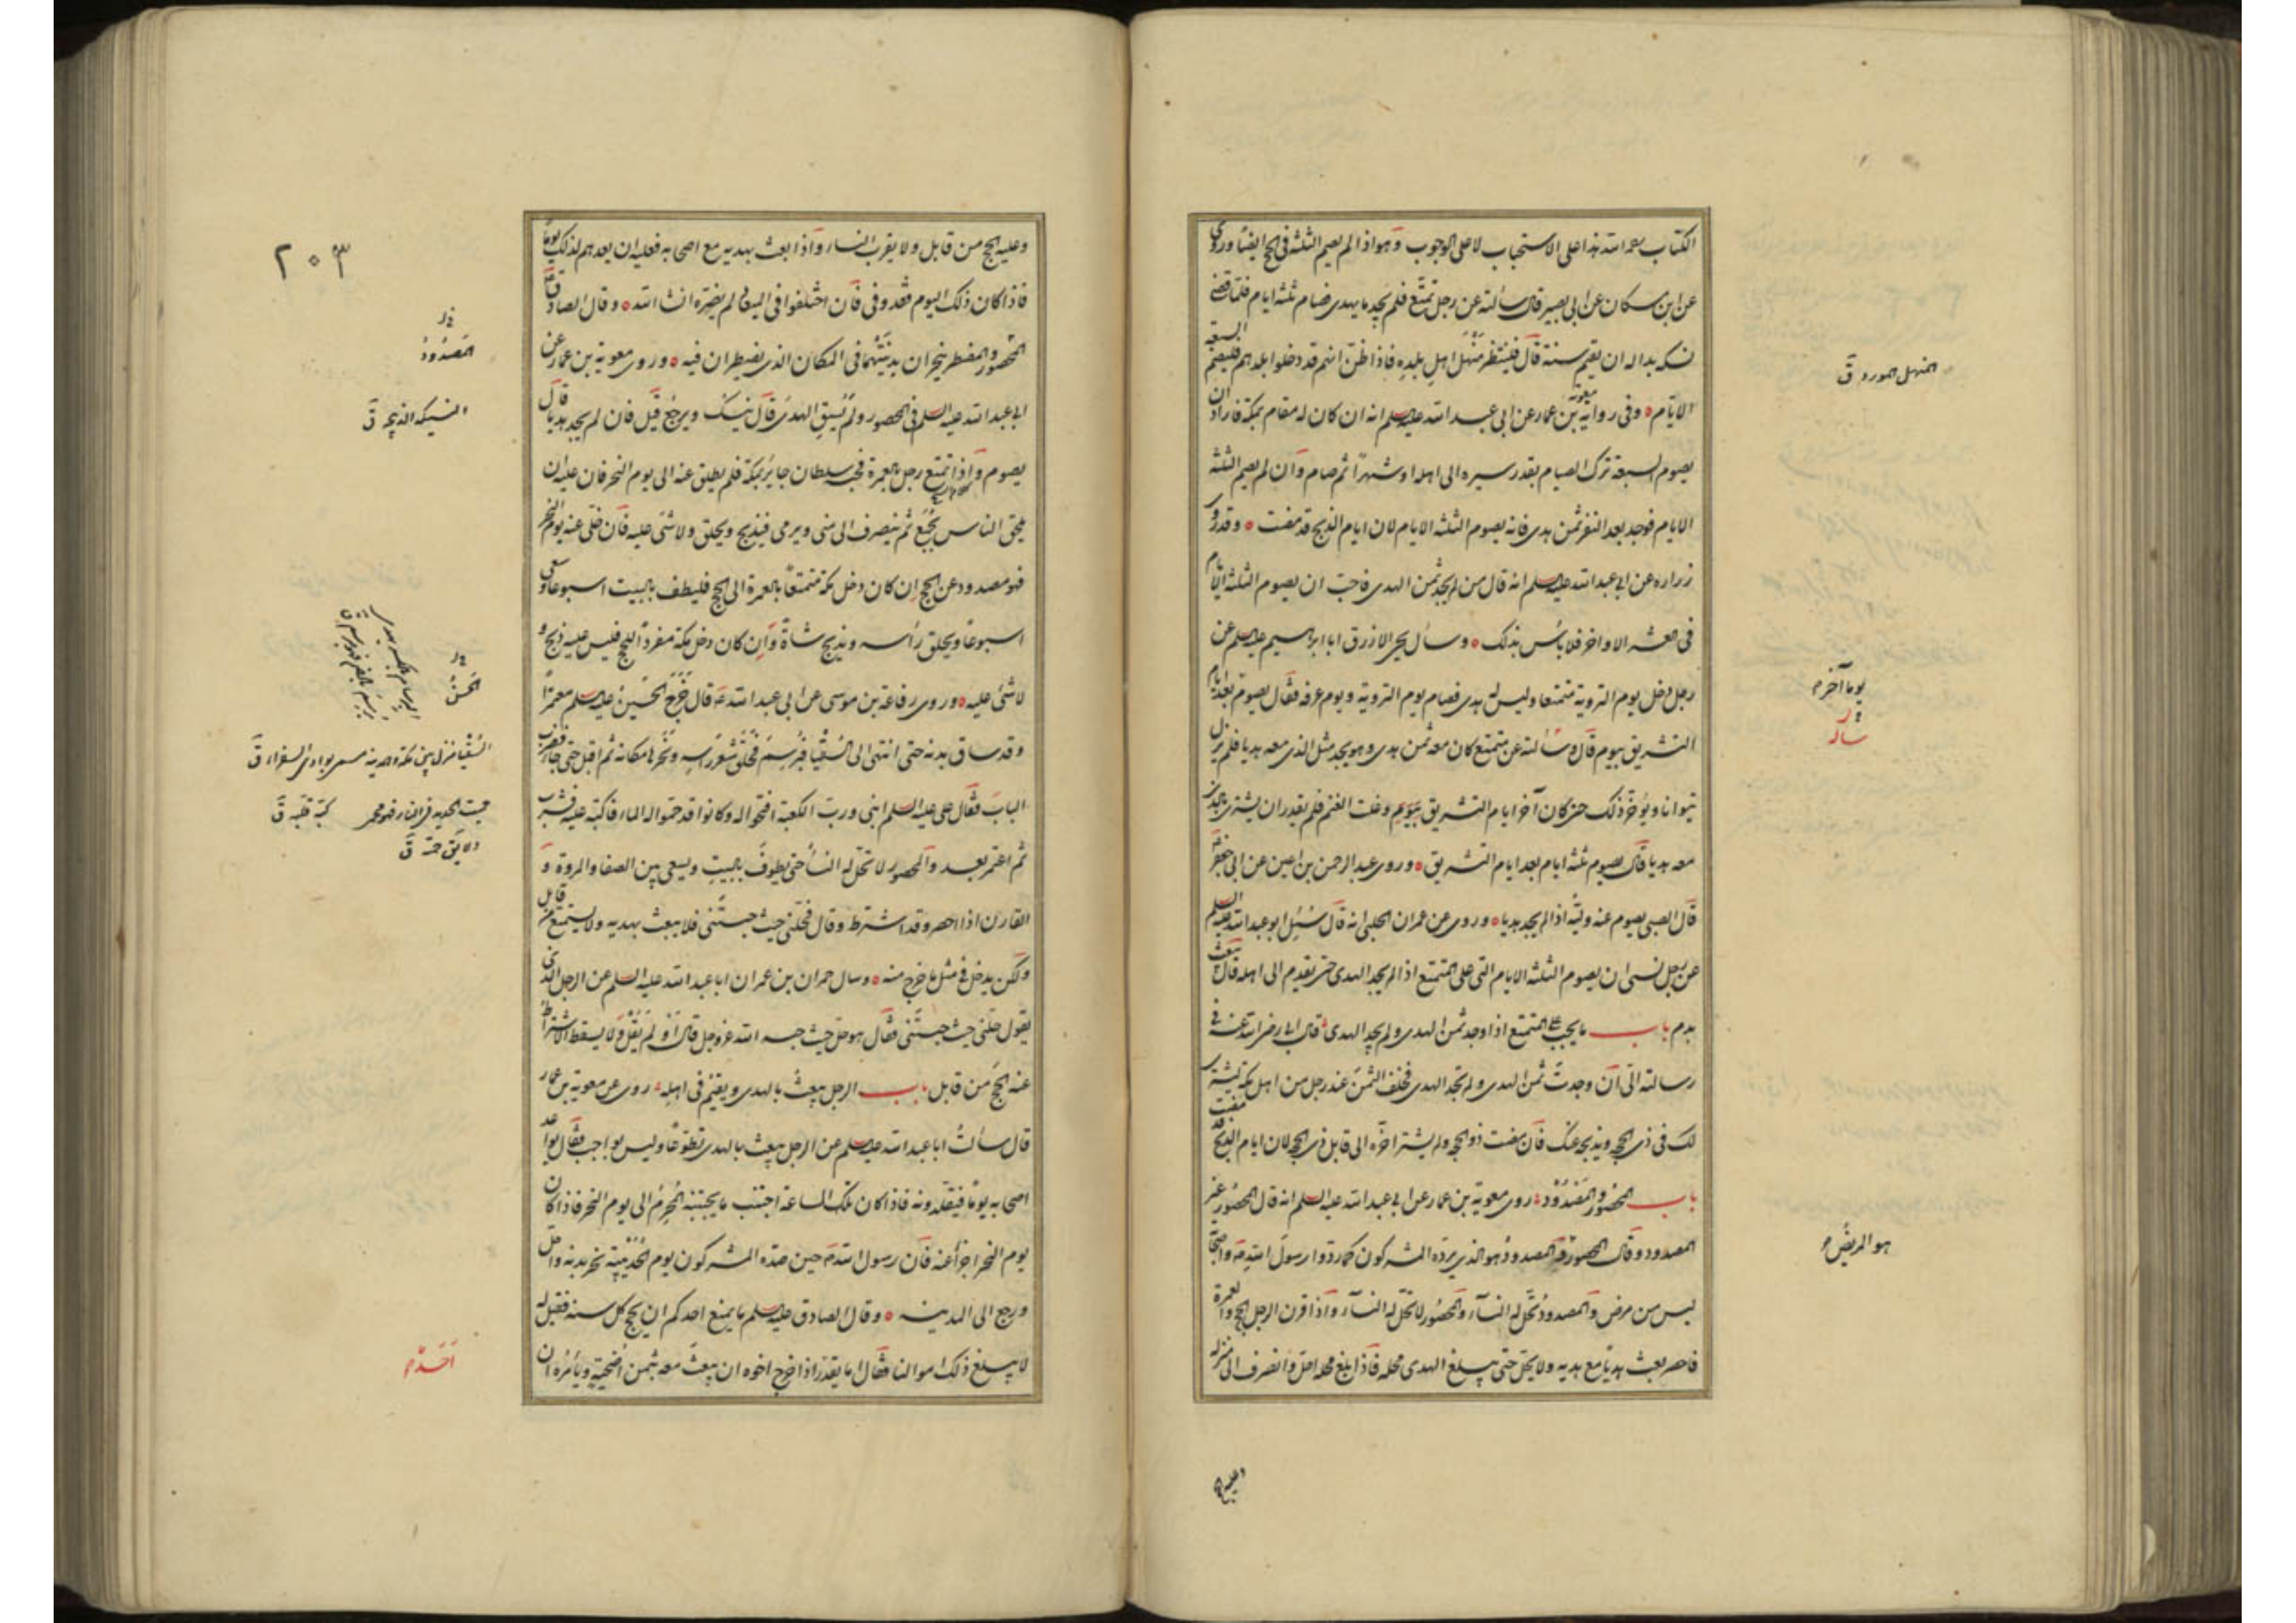 الكتاب رحمه الله هذا على الاستحباب لا على الوجوب وهو اذا لم يصم الثلثة فى الحج ايضا وروى
عن ابن مسكان عن ابى بصير قال سألته عن رجل تمتّع فلم يجد ما يهدى فصام ثلثة ايام فلما قضى
نسكه بدا له ان يقيم سنة قال فلينتظر منهل اهل بلده فاذا ظن انهم قد دخلوا بلدهم فليصم السبعة
الايّام وفى رواية معوية بن عمار عن ابى عبد الله عليه السلم انه ان كان له مقام بمكة فاراد ان
يصوم السبعة ترك الصيام بقدر سيره الى اهله او شهرًا ثم صام وان لم يصم الثلثة
الايام فوجد بعد النفر ثمن هدى فانه يصوم الثلثة الايام لان ايام الذبح قد مضت وقد روى
زرارة عن ابى عبد الله عليه السلم انه قال من لم يجد ثمن الهدى فاحبّ ان يصوم الثلثة الايام
فى العشر الاواخر فلا بأس بذلك وسأل يحيى الازرق ابا ابراهيم عليه السلم عن
رجل دخل يوم التروية متمتعا وليس له هدى فصام يوم التروية ويوم عرفة فقال يصوم بعد ايام
التشريق بيوم قال وسألته عن متمتع كان معه ثمن هدى وهو يجد مثل الذى معه هديا فلم يزل
يتوانا ويؤخر ذلك حتى كان آخر ايام التشريق بيوم وغلت الغنم فلم يقدر ان يشترى بالذى
معه هديا قال يصوم ثلثة ايام بعد ايام التشريق وروى عبد الرحمن بن اعين عن ابى جعفر
قال الصبى يصوم عنه وليّه اذا لم يجد هديا وروى عن عمران الحلبى انه قال سئل ابو عبد الله عليه السلم
عن رجل نسى ان يصوم الثلثة الايام التى على المتمتع اذا لم يجد الهدى حتى يقدم الى اهله قال يبعث
بدم باب ما يجب على المتمتع اذا وجد ثمن الهدى ولم يجد الهدى قال ابى رضى الله عنه فى
رسالته الىّ ان وجدتَ ثمن الهدى ولم تجد الهدى فخلف الثمن عند رجل من اهل مكة يشترى
لك فى ذى الحجة ويذبحه عنك فان مضت ذو الحجة ولم يشتر اخّره الى قابل ذى الحجة لان ايام الذبح قد مضت
باب المحصور والمصدود روى معوية بن عمار عن ابى عبد الله عليه السلم انه قال المحصور غير
المصدود وقال المحصور والمصدود هو الذى يردّه المشركون كما ردّوا رسول الله واصحابه
ليس من مرض والمصدود تحل له النسآء والمحصور لا تحل له النسآء واذا قرن الرجل الحج والعمرة
فاحصر بعث هديا مع هديه ولا يحل حتى يبلغ الهدى محله فاذا بلغ محله احلّ وانصرف الى منزله
المنهل المورد ق
يوما آخرم
سأله
هو المريض
وعليه الحج
٢٠٣
وعليه الحج من قابل ولا يقرب النساء واذا بعث بهديه مع اصحابه فعليه ان يعدهم لذلك يومًا
فاذا كان ذلك اليوم فقد وفى فان اختلفوا فى الميعاد لم يضرّه ان شاء الله وقال الصادق
المحصور والمضطر ينحران بدنتهما فى المكان الذى يضطران فيه وروى معوية بن عمار عن
ابى عبد الله عليه السلم فى المحصور ولم يسق الهدى قال ينسك ويرجع قيل فان لم يجد هديا قال
يصوم واذا تمتع رجل بالعمرة فحبسه سلطان جاير بمكة فلم يطلق عنه الى يوم النحر فان عليه ان
يلحق الناس بجمع ثم ينصرف الى منى ويرمى ويذبح ويحلق ولا شىء عليه فان خلى عنه يوم النحر
فهو مصدود عن الحج ان كان دخل مكة متمتعًا بالعمرة الى الحج فليطف بالبيت اسبوعا ويسعى
اسبوعًا ويحلق رأسه ويذبح شاة وان كان دخل مكة مفردًا للحج فليس عليه ذبح و
لا شىء عليه وروى رفاعة بن موسى عن ابى عبد الله قال خرج الحسين عليه السلم معتمرًا
وقد ساق بدنة حتى انتهى الى السقيا فبرسم فحلق شعر رأسه ونحرها مكانه ثم اقبل حتى جاء فضرب
الباب فقال على عليه السلم ابنى ورب الكعبة افتحوا له وكانوا قد حموا له الماء فاكبّ عليه فشرب
ثم اعتمر بعد والمحصور لا تحل له النسآء حتى يطوف بالبيت ويسعى بين الصفا والمروة و
القارن اذا احصر وقد اشترط وقال فحلّنى حيث حبستنى فلا يبعث بهديه ولا يستمتع من قابل
ولكن يدخل فى مثل ما خرج منه وسال حمران بن عمران ابا عبد الله عليه السلم عن الرجل الذى
يقول حلّنى حيث حبستنى فقال هو حل حيث حبسه الله عز وجل قال او لم يقل ولا يسقط الاشتراط
عنه الحج من قابل باب الرجل يبعث بالهدى ويقيم فى اهله روى عن معوية بن عمار
قال سألت ابا عبد الله عليه السلم عن الرجل يبعث بالهدى تطوعًا وليس بواجب فقال يواعد
اصحابه يومًا فيقلّدونه فاذا كان تلك الساعة اجتنب ما يجتنبه المحرم الى يوم النحر فاذا كان
يوم النحر اجزأ عنه فان رسول الله حين صدّه المشركون يوم الحديبية نحر بدنة واحل
ورجع الى المدينة وقال الصادق عليه السلم ما يمنع احدكم ان يحج كل سنة فقيل له
لا يبلغ ذلك اموالنا فقال اما يقدر اذا خرج اخوه ان يبعث معه بثمن اضحية ويأمره ان
المصدود
النسيكة الذبيحة ق
الحسن
السقيا منزل بين مكة والمدينة
كبّه قلبه ق
احدكم